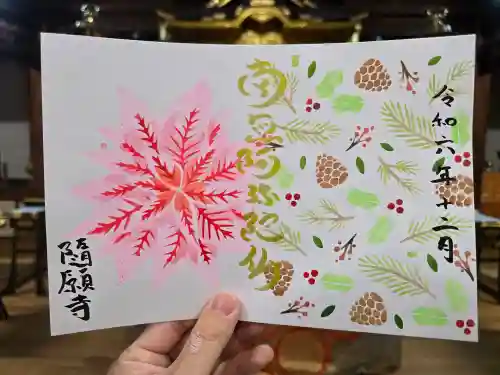 令和六年十二月
南無阿弥陀仏
随願寺